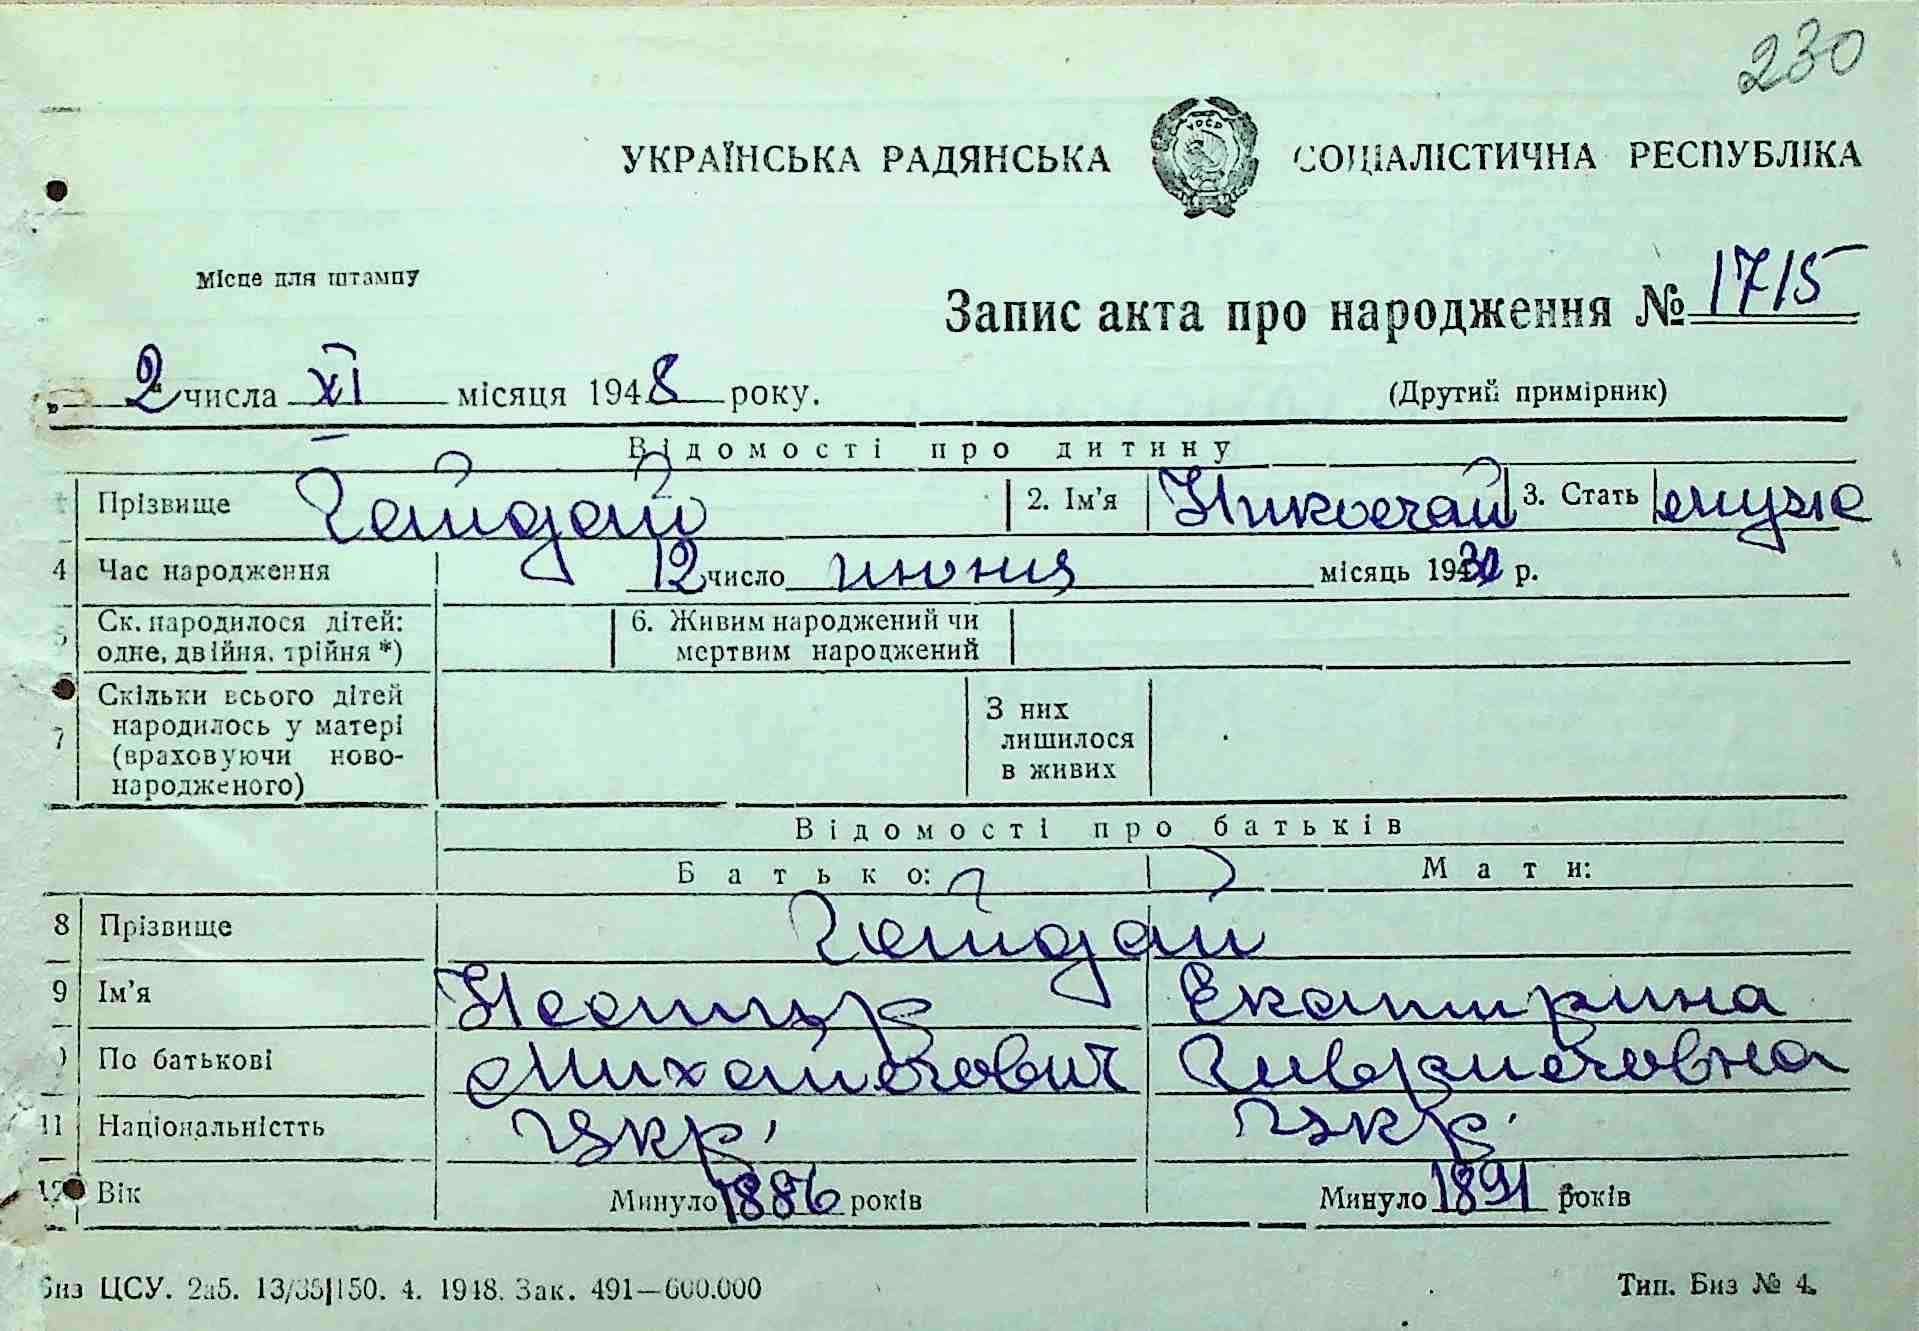 230
УКРАЇНСЬКА РАДЯНСЬКА СОЦІАЛІСТИЧНА РЕСПУБЛІКА
Місце для штампу
Запис акта про народження № 1715
„ 2 числа XI місяця 1948 року.
(Другий примірник)
Відомості про дитину
Прізвище Гайдай 2. Ім'я Николай 3. Стать муж
4 Час народження 12 число июня місяць 19 р.
5 Ск. народилося дітей: одне, двійня, трійня *) 6. Живим народжений чи мертвим народжений
7 Скільки всього дітей народилось у матері (враховуючи новонародженого) З них лишилося в живих
Відомості про батьків
Батько: Мати:
8 Прізвище Гайдай
9 Ім'я Екатирина
По батькові Михайлович Гавриловна
11 Національністть укр. укр.
12 Вік Минуло 1886 років Минуло 1891 років
Биз ЦСУ. 2а5. 13/35|150. 4. 1948. Зак. 491—600.000
Тип. Биз № 4.